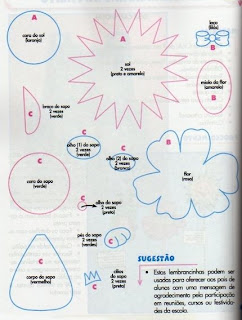 A
cara do sol
(laranja)
A
sol
2 vezes
(preto e amarelo)
laço
(lilás)
B
miolo da flor
(amarelo)
B
C
braço do sapo
2 vezes
(verde)
C
olho (1) do sapo
2 vezes
(verde)
C
olho (2) do sapo
2 vezes
(branco)
B
flor
(rosa)
C
cara do sapo
(verde)
C
olho do sapo
2 vezes
(preto)
C
pés do sapo
2 vezes
(verde)
C
corpo do sapo
(vermelho)
C
cílios
do sapo
2 vezes
(preto)
SUGESTÃO
• Estas lembrancinhas podem ser
usadas para oferecer aos pais de
alunos com uma mensagem de
agradecimento pela participação
em reuniões, cursos ou festivida-
des da escola.